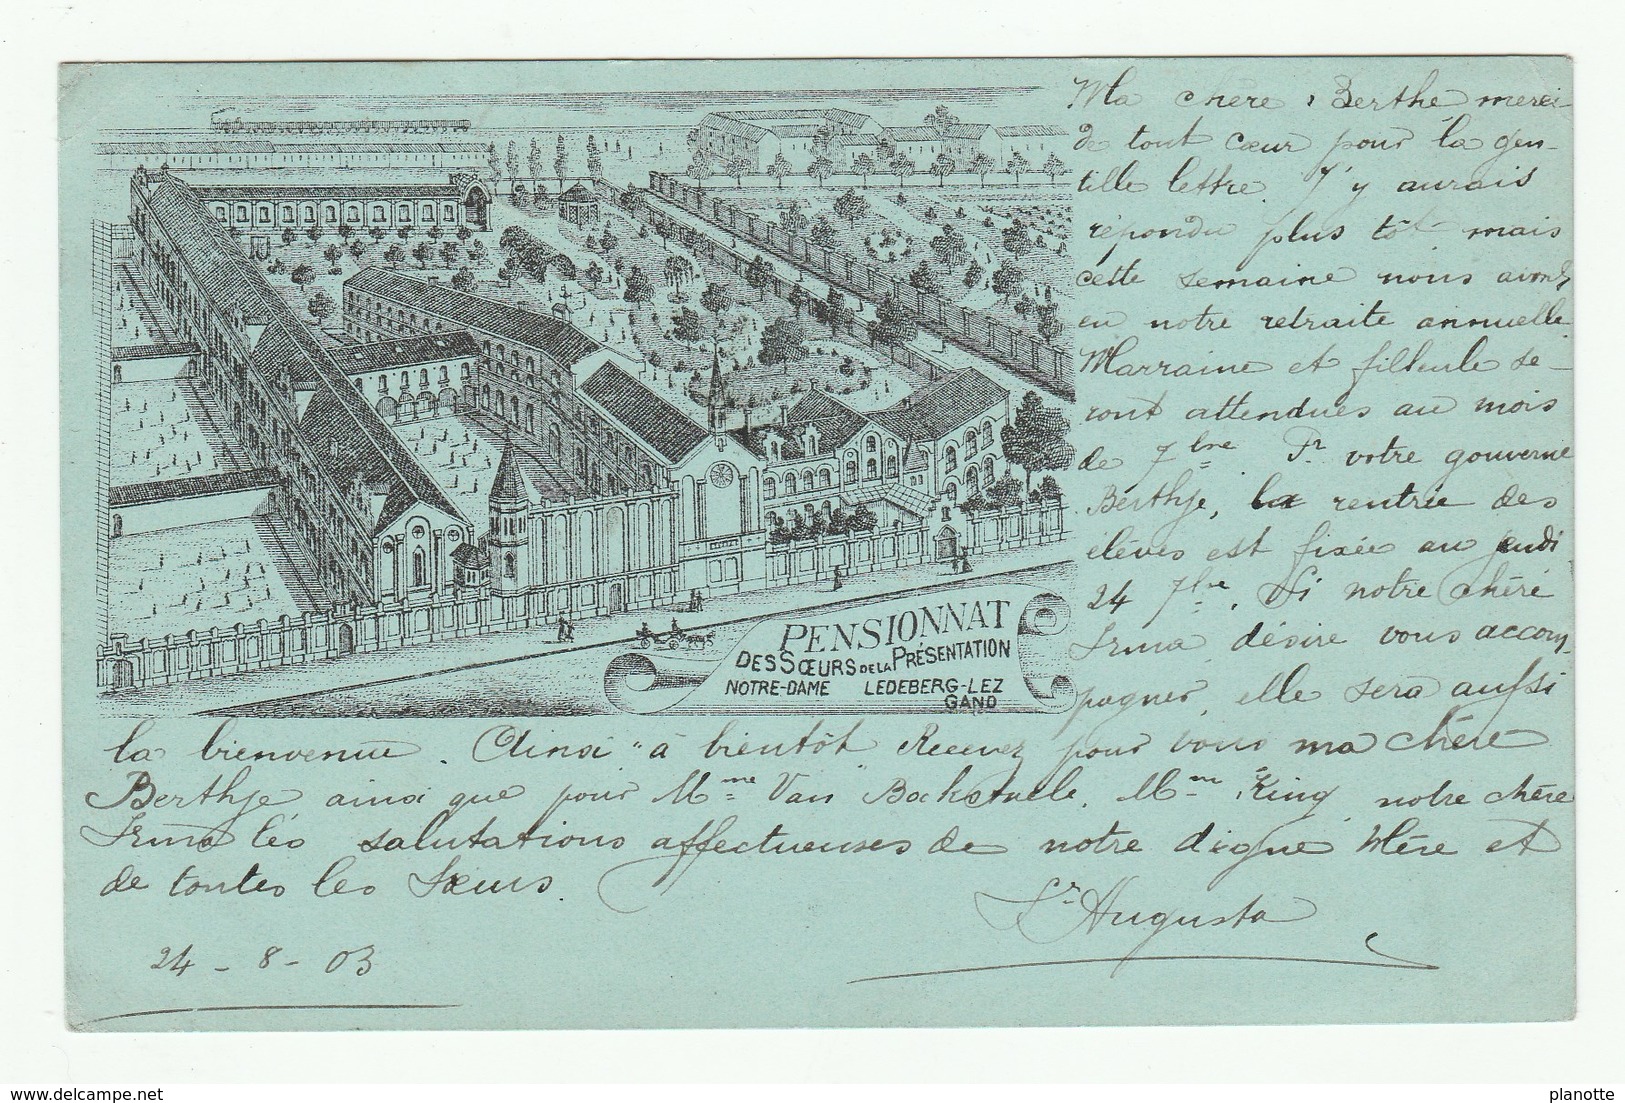 Ma chère Berthe, merci
de tout cœur pour la gen-
tille lettre. J'y aurais
répondu plus tôt, mais
cette semaine nous avons
eu notre retraite annuelle
Marraine et filleule se-
ront attendues au mois
de 7bre Pr votre gouverne
Berthje, la rentrée des
élèves est fixée au jeudi
24 7bre. Si notre chère
Irma désire vous accom
pagner, elle sera aussi
PENSIONNAT
DES SŒURS DE LA PRÉSENTATION
NOTRE-DAME LEDEBERG-LEZ
GAND
la bienvenue. Ainsi à bientôt. Recevez pour vous ma chère
Berthje ainsi que pour Mme Van Bockstaele, Mme King, notre chère
Irma les salutations affectueuses de notre digne Mère et
de toutes les Sœurs.
Sr Augusta
24 - 8 - 03
planotte